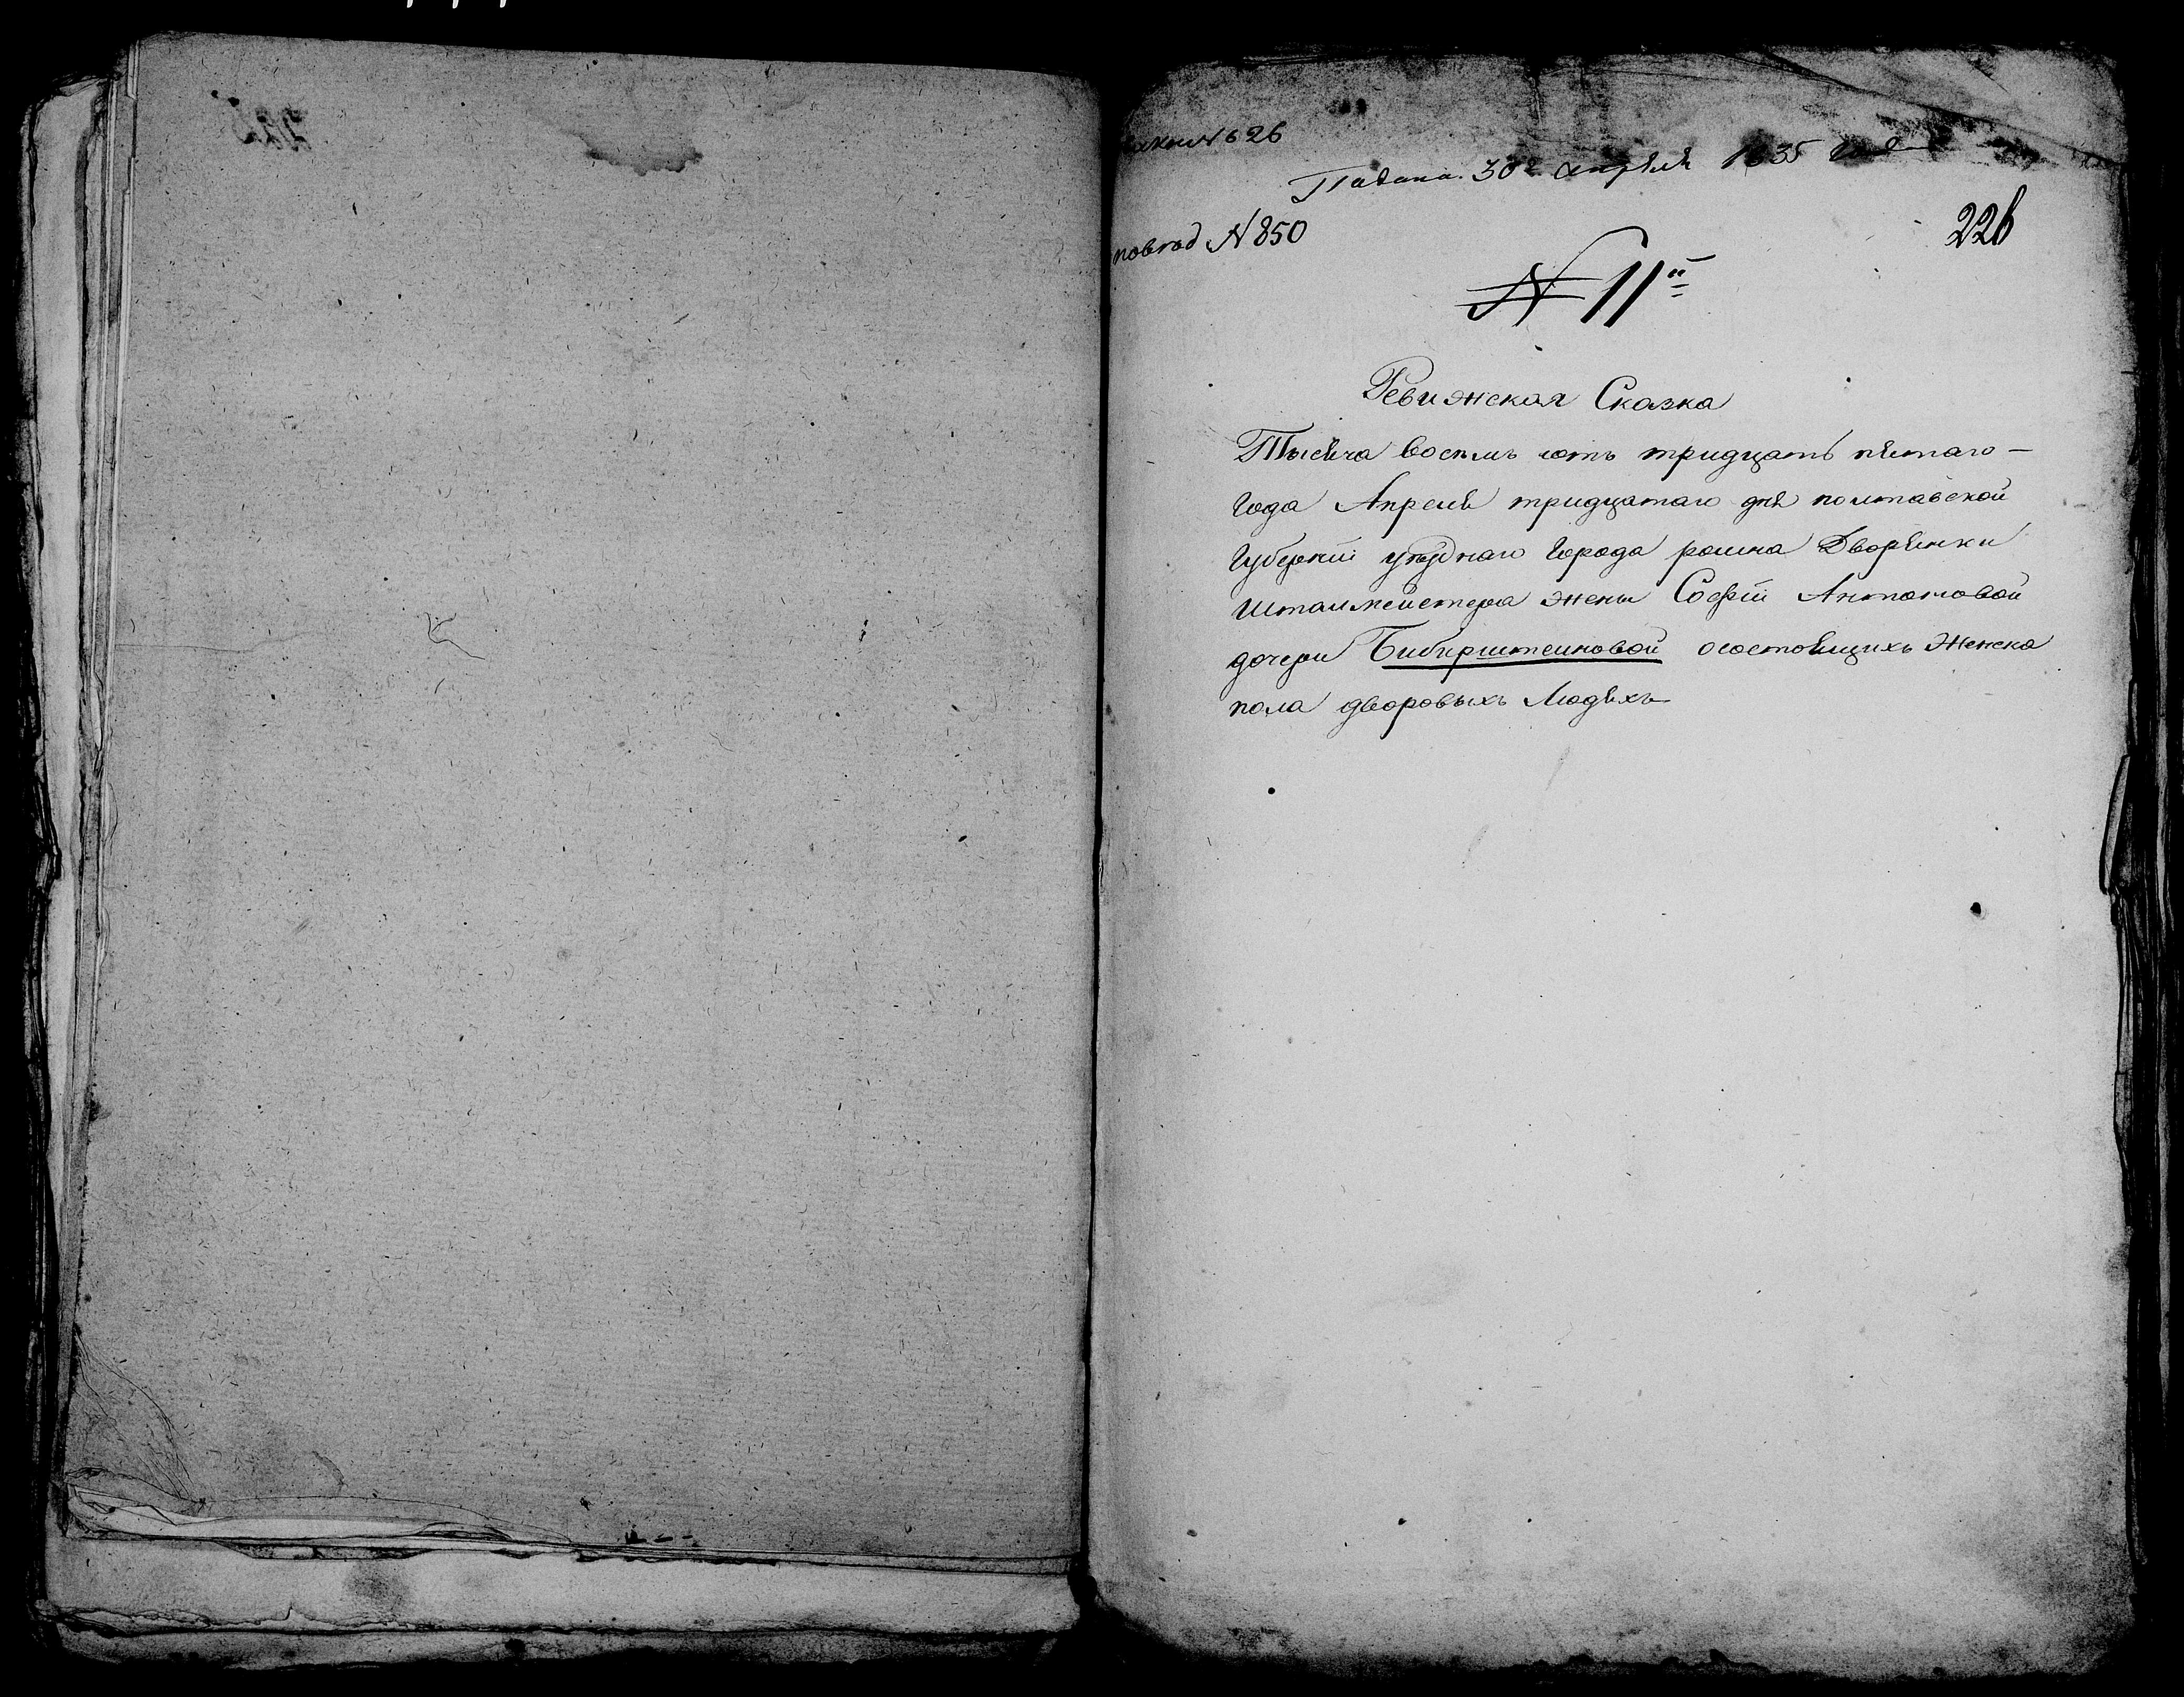 N 626
Падана 30го апреля 1835 года
226
повгод N 850
N 11й
Ревижская Сказка
Тысяча восемь сотъ тридцать пятаго —
года Апреля тридцатаго дня полтавской
губернїи уезднаго города ромна Дворянки
шталмейстера жены Софїи Антоновой
дочери Бибирштеиновой осостоящихъ Женска
пола дворовыхъ Людяхъ